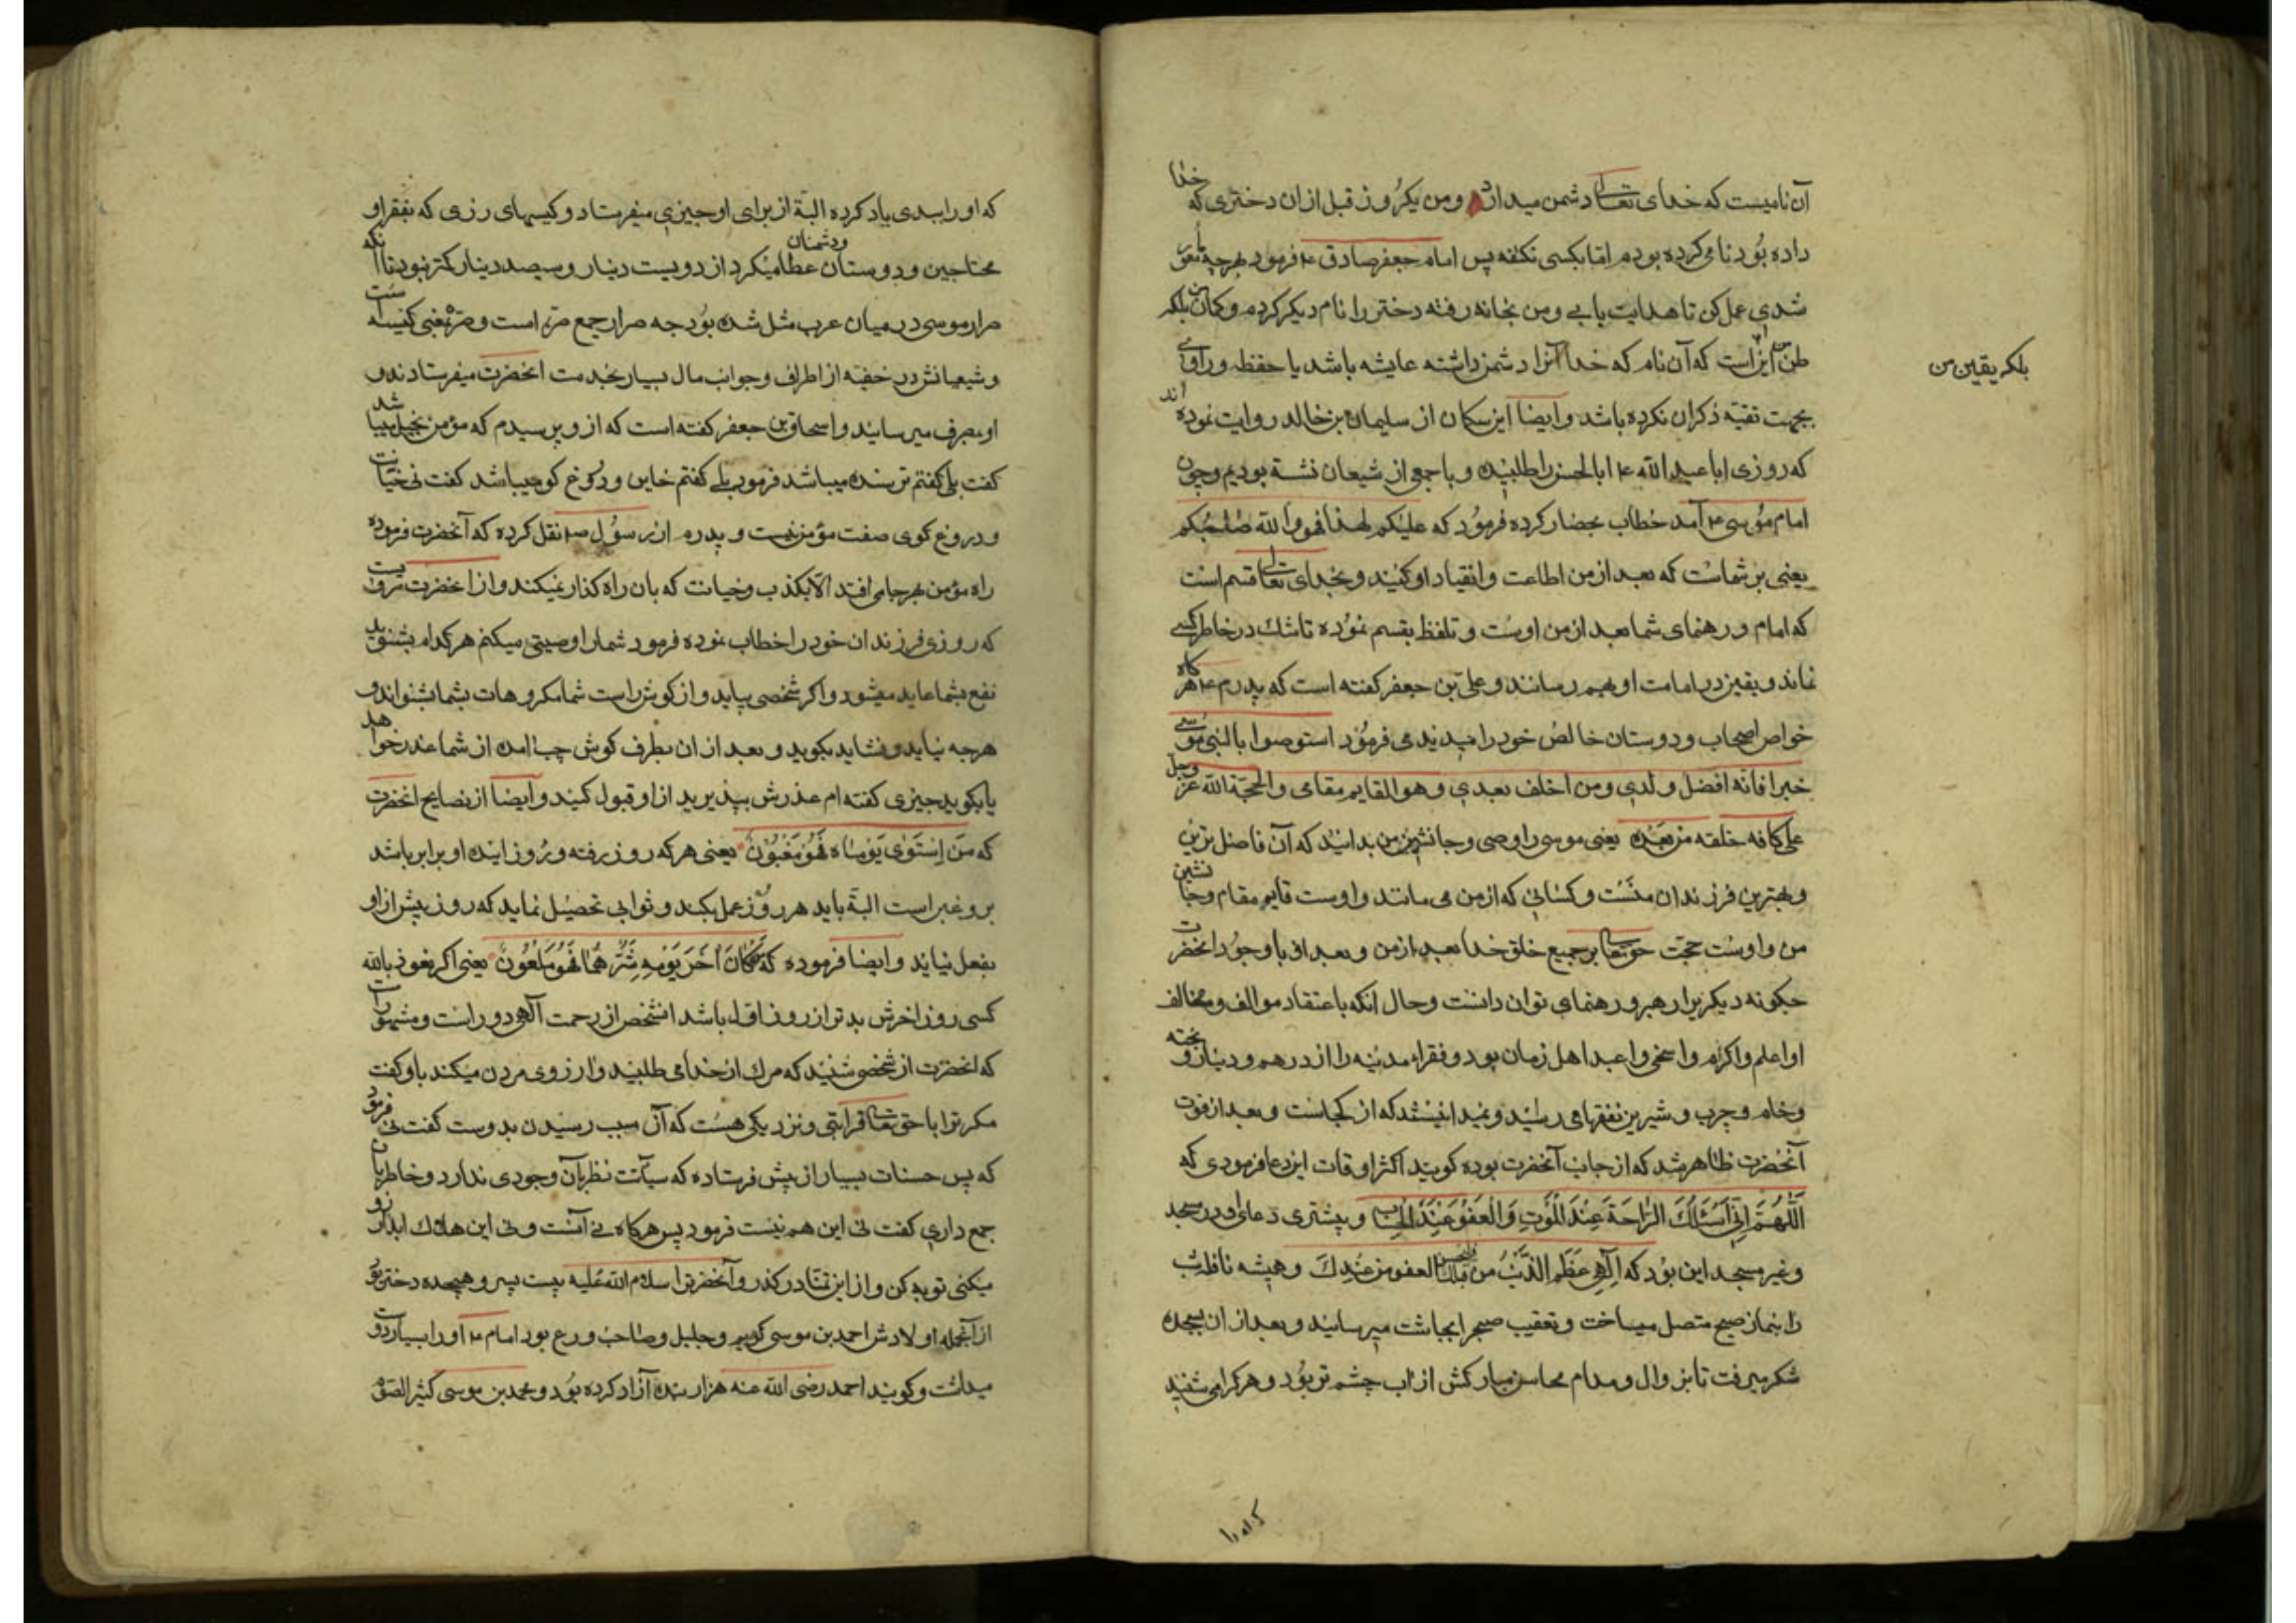 آن نامیست که خدای تعالی دشمن میدارد ومن یکروز قبل ازان دختری که خدا
داده بود نامی کرده بودم اما بکسی نکفته پس امام جعفر صادق ع فرمود بهرچه مامور
شدی عمل کن تا هدایت یابی ومن بخانه رفته دختر را نام دیکر کردم وکمان من بلکه
ظن من این است که آن نام که خدا آنرا دشمن داشته عایشه باشد یا حفظه وراوی
بجهت تقیه ذکر ان نکرده باشد وایضا ابن سکان از سلیمان بن خالد روایت نموده اند
که روزی اباعبدالله ع ابالحسن را طلبیده وبا جمعی از شیعان نشسته بودیم وچون
امام موسی ع آمد خطاب بحضار کرده فرمود که علیکم لهذا فهو والله صاحبکم
یعنی بر شماست که بعد از من اطاعت وانقیاد او کنید وبخدای تعالی قسم است
که امام ورهنمای شما بعد از من اوست وتلفظ بقسم نموده تا شک در خاطر کسی
نماند ویقین در امامت او بهم رسانند وعلی بن جعفر کفته است که پدرم ع هرکاه
خواص اصحاب ودوستان خالص خود را میدید می فرمود استوصوا بالنبی موسی
خیرا فانه افضل ولدی ومن اخلف بعدی وهو القایم مقامی والحجة الله عز وجل
علی کافه خلقه من بعده یعنی موسی را وصی وجانشین من بدانید که آن فاضل ترین
وبهترین فرزندان منست وکسانی که از من می مانند واوست قایم مقام وجانشین
من واوست حجت حق تعالی بر جمیع خلق خدا بعد از من وبعد از با وجود انحضرت
چکونه دیکریرا رهبر ورهنمای توان دانست وحال انکه باعتقاد موالف ومخالف
او اعلم واکرم واسخی واعبد اهل زمان بود وفقراء مدینه را از درهم ودینار وپخته
وخام وچرب وشیرین نفقها می رسید ونمیدانیستند که از کجاست وبعد از فوت
آنحضرت ظاهر شد که از جانب آنحضرت بوده کویند اکثر اوقات این دعا فرمودی که
اَللّٰهُمَّ اِنّی اَسْئَلُکَ الرّاحَةَ عِنْدَ الْمَوْتِ وَالْعَفْوَ عِنْدَ الْحِسٰابِ وبیشتری دعای او در مسجد
وغیر مسجد این بود که آلهی عَظُمَ الذَّنْبُ من عبدک فلیحسن العفو من عندک وهمیشه نافله شب
را بنماز صبح متصل میساخت وتعقیب صبح را بچاشت میرسانید وبعد از ان بسجده
شکر میرفت تا بزوال ومدام محاسن مبارکش از اب چشم تر بود وهر کرا می شنید
بلکه یقین من
که او را
که او را ببدی یاد کرده البتة از برای او چیزی میفرستاد وکیسهای رزی که بفقرا و
محتاجین ودوستان ودشمنان عطا میکرد از دویست دینار وسیصد دینار کمتر نبود تا آنکه
صرار موسی در میان عرب مثل شده بود چه صرار جمع صره است وصره بمعنی کیسه است
وشیعیانش در خفیه از اطراف وجوانب مال بسیار بخدمت انحضرت میفرستادند و
او بمصرف میرسانید واسحاق بن جعفر کفته است که از وپرسیدم که مؤمن بخیل میباشد
کفت بلی کفتم ترسنده میباشد فرمود بلی کفتم خاین ودروغ کو میباشد کفت نی خیانت
ودروغ کوی صفت مؤمن نیست وپدرم از رسول ص نقل کرده که آنحضرت فرموده
راه مؤمن بهر جا می افتد الا بکذب وخیانت که بان راه کذار نمیکند واز انحضرت مرویست
که روزی فرزندان خود را خطاب نموده فرمود شمارا وصیتی میکنم هر کدام بشنوید
نفع بشما عاید میشود واکر شخصی بیاید واز کوش راست شما مکروهات بشما بشنواند و
هرچه نباید ونشاید بکوید وبعد از ان بطرف کوش چپ امده از شما عذر خواهد
یا بکوید چیزی کفته ام عذرش بپذیرید از او قبول کنید وایضا از نصایح انحضرت
که مَن اِسْتَوٰی یَوْمٰاه فَهُوَ مَغْبُوْن یعنی هر که روز رفته وروز اینده او برابر باشد
بر وغبن است البتة باید هر روز عمل بکند وثوابی تحصیل نماید که روز پیش از او
بفعل نیاید وایضا فرموده که مَنْ کٰانَ آخَرَ یَوْمِهِ شَرَّهُمٰا فَهُوَ مَلْعُوْن یعنی اکر نعوذ بالله
کسی روز اخرش بدتر از روز اول باشد انشخص از رحمت آلهی دور است ومشهور است
که انحضرت از شخصی شنید که مرک از خدا می طلبید وارزوی مردن میکند باو کفت
مکر ترا با حق تعالی قرابتی ونزدیکی هست که آن سبب رسیدن بدوست کفت نی فرمود
که پس حسنات بسیار از پیش فرستاده که سیآت نظر بآن وجودی ندارد وخاطر بان
جمع داری کفت نی این هم نیست فرمود پس هرکاه نی آنست ونی این هلاک ابد ارزو
میکنی توبه کن واز این تمنا در کذر وآنحضرترا سلام الله علیه بیست پسر وهیجده دختر بود
از آنجمله اولادش احمد بن موسی کریم وجلیل وصاحب ورع بود امام ع او را بسیار دوست
میداشت وکویند احمد رضی الله عنه هزار بنده آزاد کرده بود ومحمد بن موسی کثیر الصوم